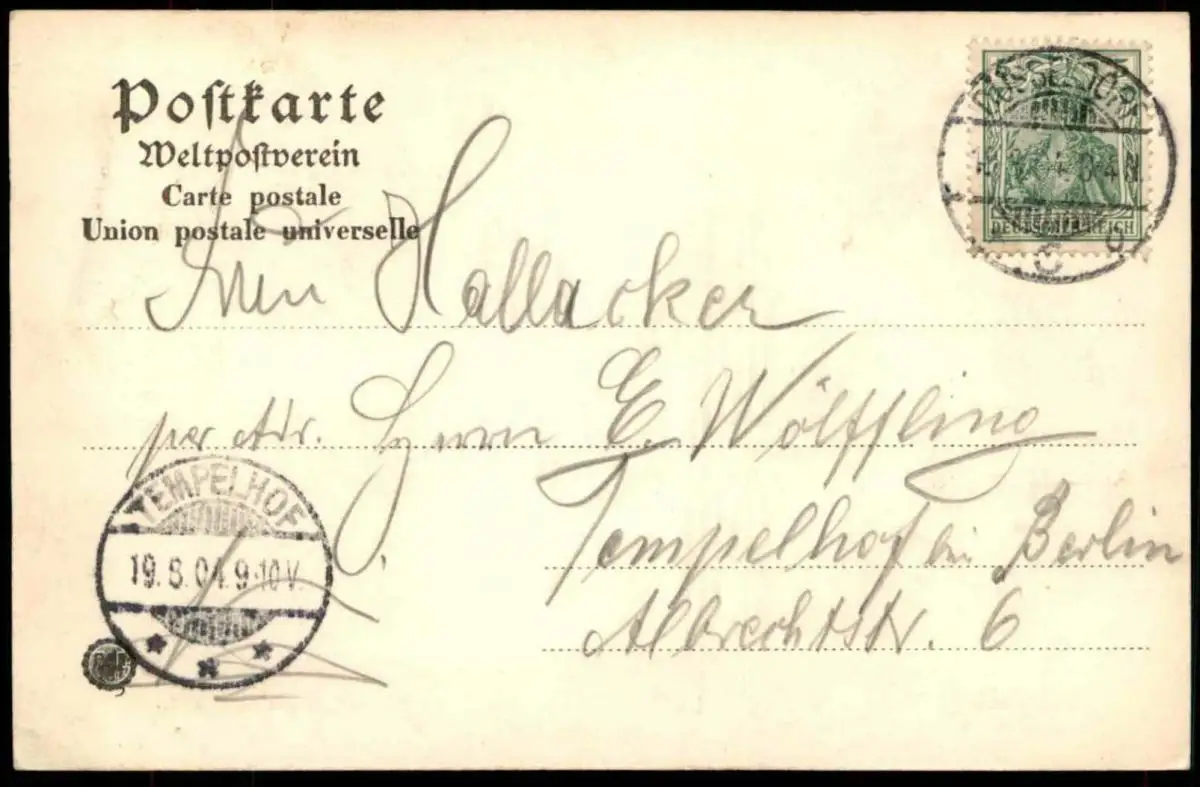 Postkarte
Weltpostverein
Carte postale
Union postale universelle
DEUTSCHES REICH
Hallacker
per Adr. Herrn E. Wölffling
Tempelhof bei Berlin
Albrechtstr. 6
TEMPELHOF
19.5.04.9-10V.